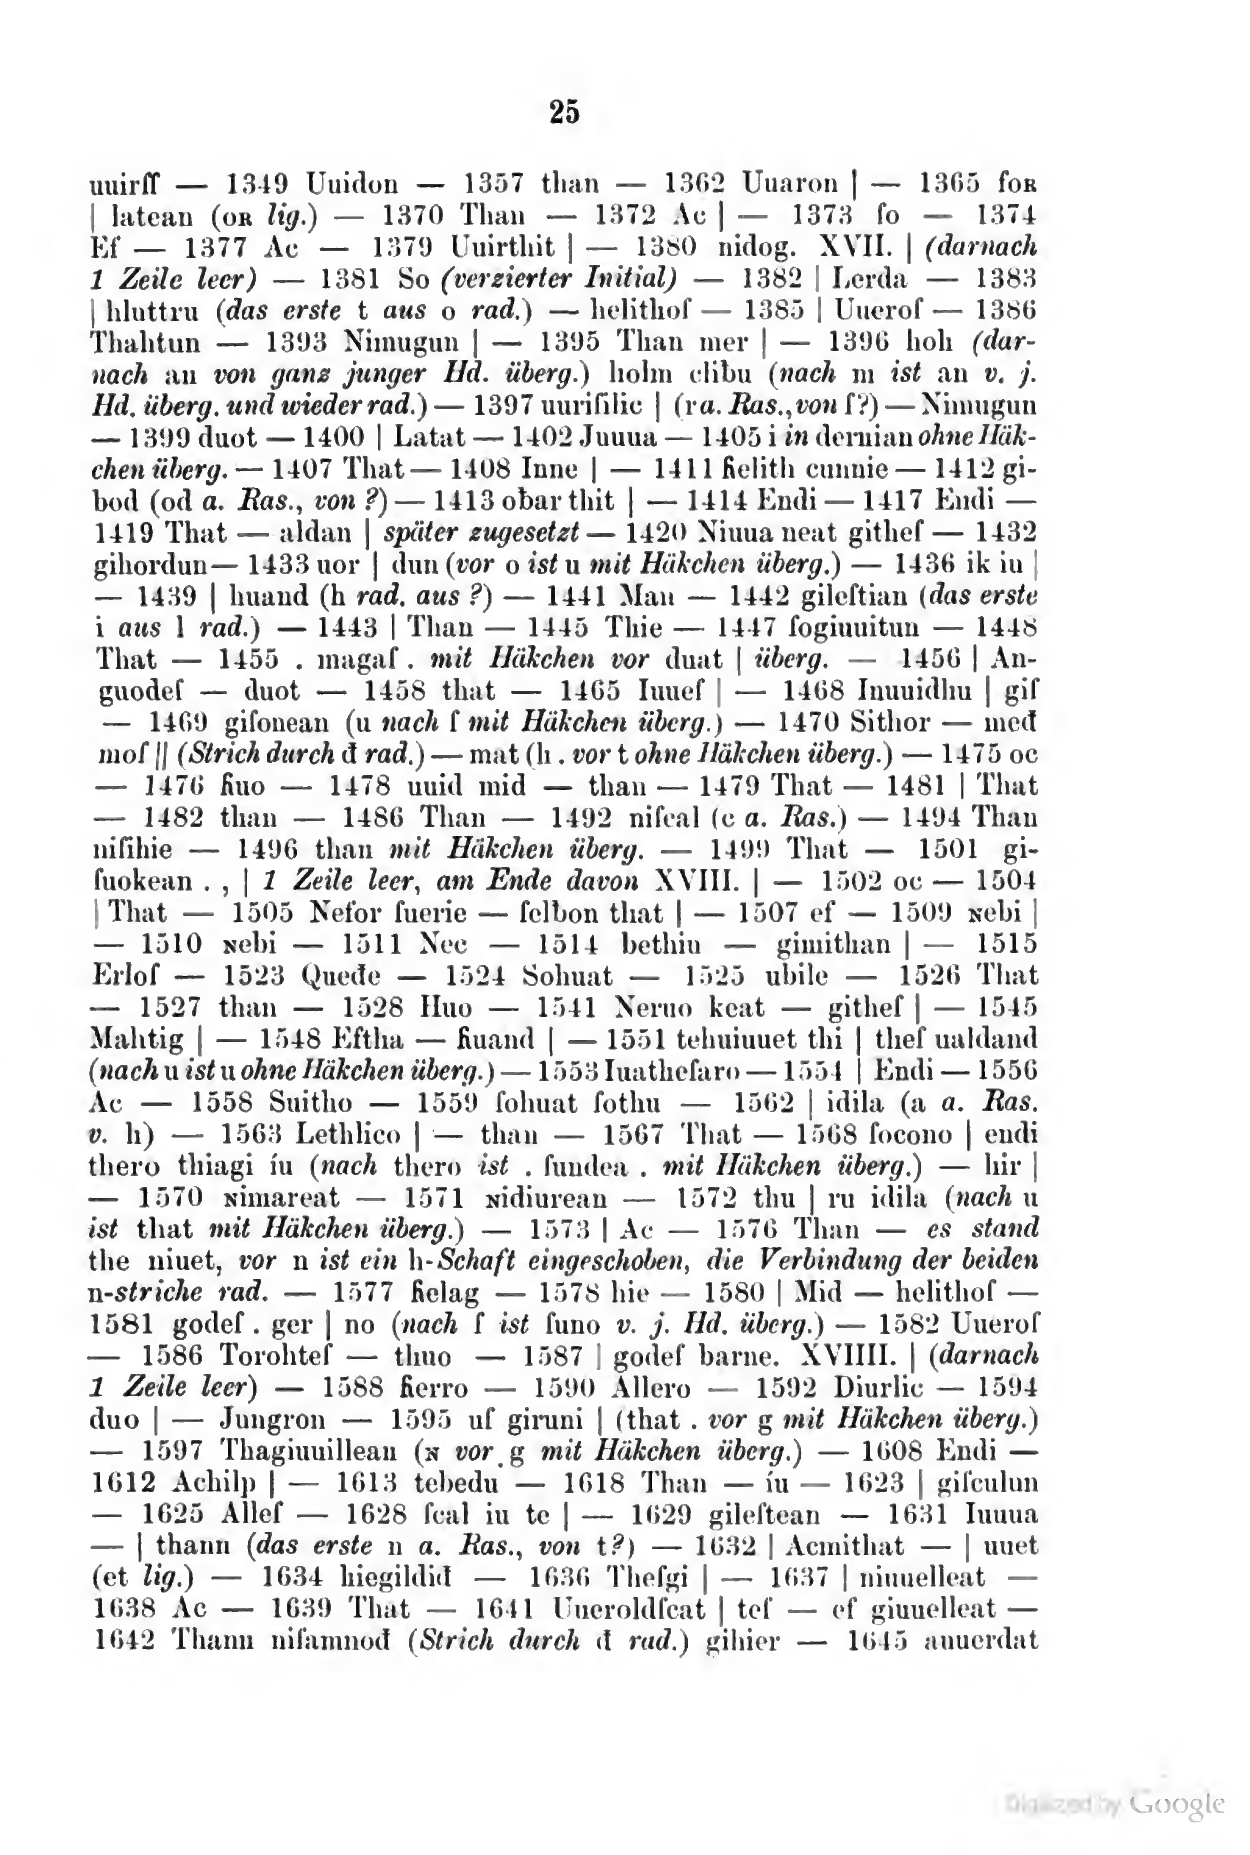 25
uuirſſ — 1349 Uuidon — 1357 than — 1362 Uuaron | — 1365 foʀ
| latean (oʀ lig.) — 1370 Than — 1372 Ac | — 1373 ſo — 1374
Eſ — 1377 Ac — 1379 Uuirthit | — 1380 nidog. XVII. | (darnach
1 Zeile leer) — 1381 So (verzierter Initial) — 1382 | Lerda — 1383
| hluttru (das erste t aus o rad.) — helithoſ — 1385 | Uueroſ — 1386
Thahtun — 1393 Nimugun | — 1395 Than mer | — 1396 hoh (dar-
nach an von ganz junger Hd. überg.) holm clibu (nach m ist an v. j.
Hd. überg. und wieder rad.) — 1397 uuriſilic | (r a. Ras., von ſ?) — Nimugun
— 1399 duot — 1400 | Latat — 1402 Juuua — 1405 i in dernian ohne Häk-
chen überg. — 1407 That — 1408 Inne | — 1411 ſielith cunnie — 1412 gi-
bod (od a. Ras., von ?) — 1413 obar thit | — 1414 Endi — 1417 Endi —
1419 That — aldan | später zugesetzt — 1420 Niuua neat githeſ — 1432
gihordun — 1433 uor | dun (vor o ist u mit Häkchen überg.) — 1436 ik iu |
— 1439 | huand (h rad. aus ?) — 1441 Man — 1442 gileſtian (das erste
i aus l rad.) — 1443 | Than — 1445 Thie — 1447 ſogiuuitun — 1448
That — 1455 . magaſ . mit Häkchen vor duat | überg. — 1456 | An-
guodeſ — duot — 1458 that — 1465 Iuueſ | — 1468 Inuuidhu | gif
— 1469 giſonean (u nach ſ mit Häkchen überg.) — 1470 Sithor — međ
moſ || (Strich durch đ rad.) — mat (h . vor t ohne Häkchen überg.) — 1475 oc
— 1476 ſiuo — 1478 uuid mid — than — 1479 That — 1481 | That
— 1482 than — 1486 Than — 1492 niſcal (c a. Ras.) — 1494 Than
niſihie — 1496 than mit Häkchen überg. — 1499 That — 1501 gi-
ſuokean . , | 1 Zeile leer, am Ende davon XVIII. | — 1502 oc — 1504
| That — 1505 Nefor fuerie — ſelƀon that | — 1507 ef — 1509 ɴebi |
— 1510 ɴebi — 1511 Nec — 1514 bethiu — gimithan | — 1515
Erloſ — 1523 Queđe — 1524 Sohuat — 1525 ubile — 1526 That
— 1527 than — 1528 Huo — 1541 Neruo keat — githeſ | — 1545
Mahtig | — 1548 Eftha — ſiuand | — 1551 tehuiuuet thi | theſ ualdand
(nach u ist u ohne Häkchen überg.) — 1553 Iuatheſaro — 1554 | Endi — 1556
Ac — 1558 Suitho — 1559 ſohuat ſothu — 1562 | idila (a a. Ras.
v. h) — 1563 Lethlico | — than — 1567 That — 1568 ſocono | endi
thero thiagi íu (nach thero ist . ſundea . mit Häkchen überg.) — hir |
— 1570 ɴimareat — 1571 ɴidiurean — 1572 thu | ru idila (nach u
ist that mit Häkchen überg.) — 1573 | Ac — 1576 Than — es stand
the niuet, vor n ist ein h-Schaft eingeschoben, die Verbindung der beiden
n-striche rad. — 1577 ſielag — 1578 hie — 1580 | Mid — helithoſ —
1581 godeſ . ger | no (nach ſ ist ſuno v. j. Hd. überg.) — 1582 Uueroſ
— 1586 Torohteſ — thuo — 1587 | godeſ barne. XVIIII. | (darnach
1 Zeile leer) — 1588 ſierro — 1590 Allero — 1592 Diurlic — 1594
duo | — Jungron — 1595 uſ giruni | (that . vor g mit Häkchen überg.)
— 1597 Thagiuuillean (ɴ vor g mit Häkchen überg.) — 1608 Endi —
1612 Achilp | — 1613 teƀedu — 1618 Than — íu — 1623 | giſculun
— 1625 Alleſ — 1628 ſcal iu te | — 1629 gileſtean — 1631 Iuuua
— | thann (das erste n a. Ras., von t?) — 1632 | Acmithat — | uuet
(et lig.) — 1634 hiegildiđ — 1636 Theſgi | — 1637 | niuuelleat —
1638 Ac — 1639 That — 1641 Uueroldſcat | teſ — ef giuuelleat —
1642 Thann niſamnođ (Strich durch đ rad.) gihier — 1645 anuerdat
Digitized by Google